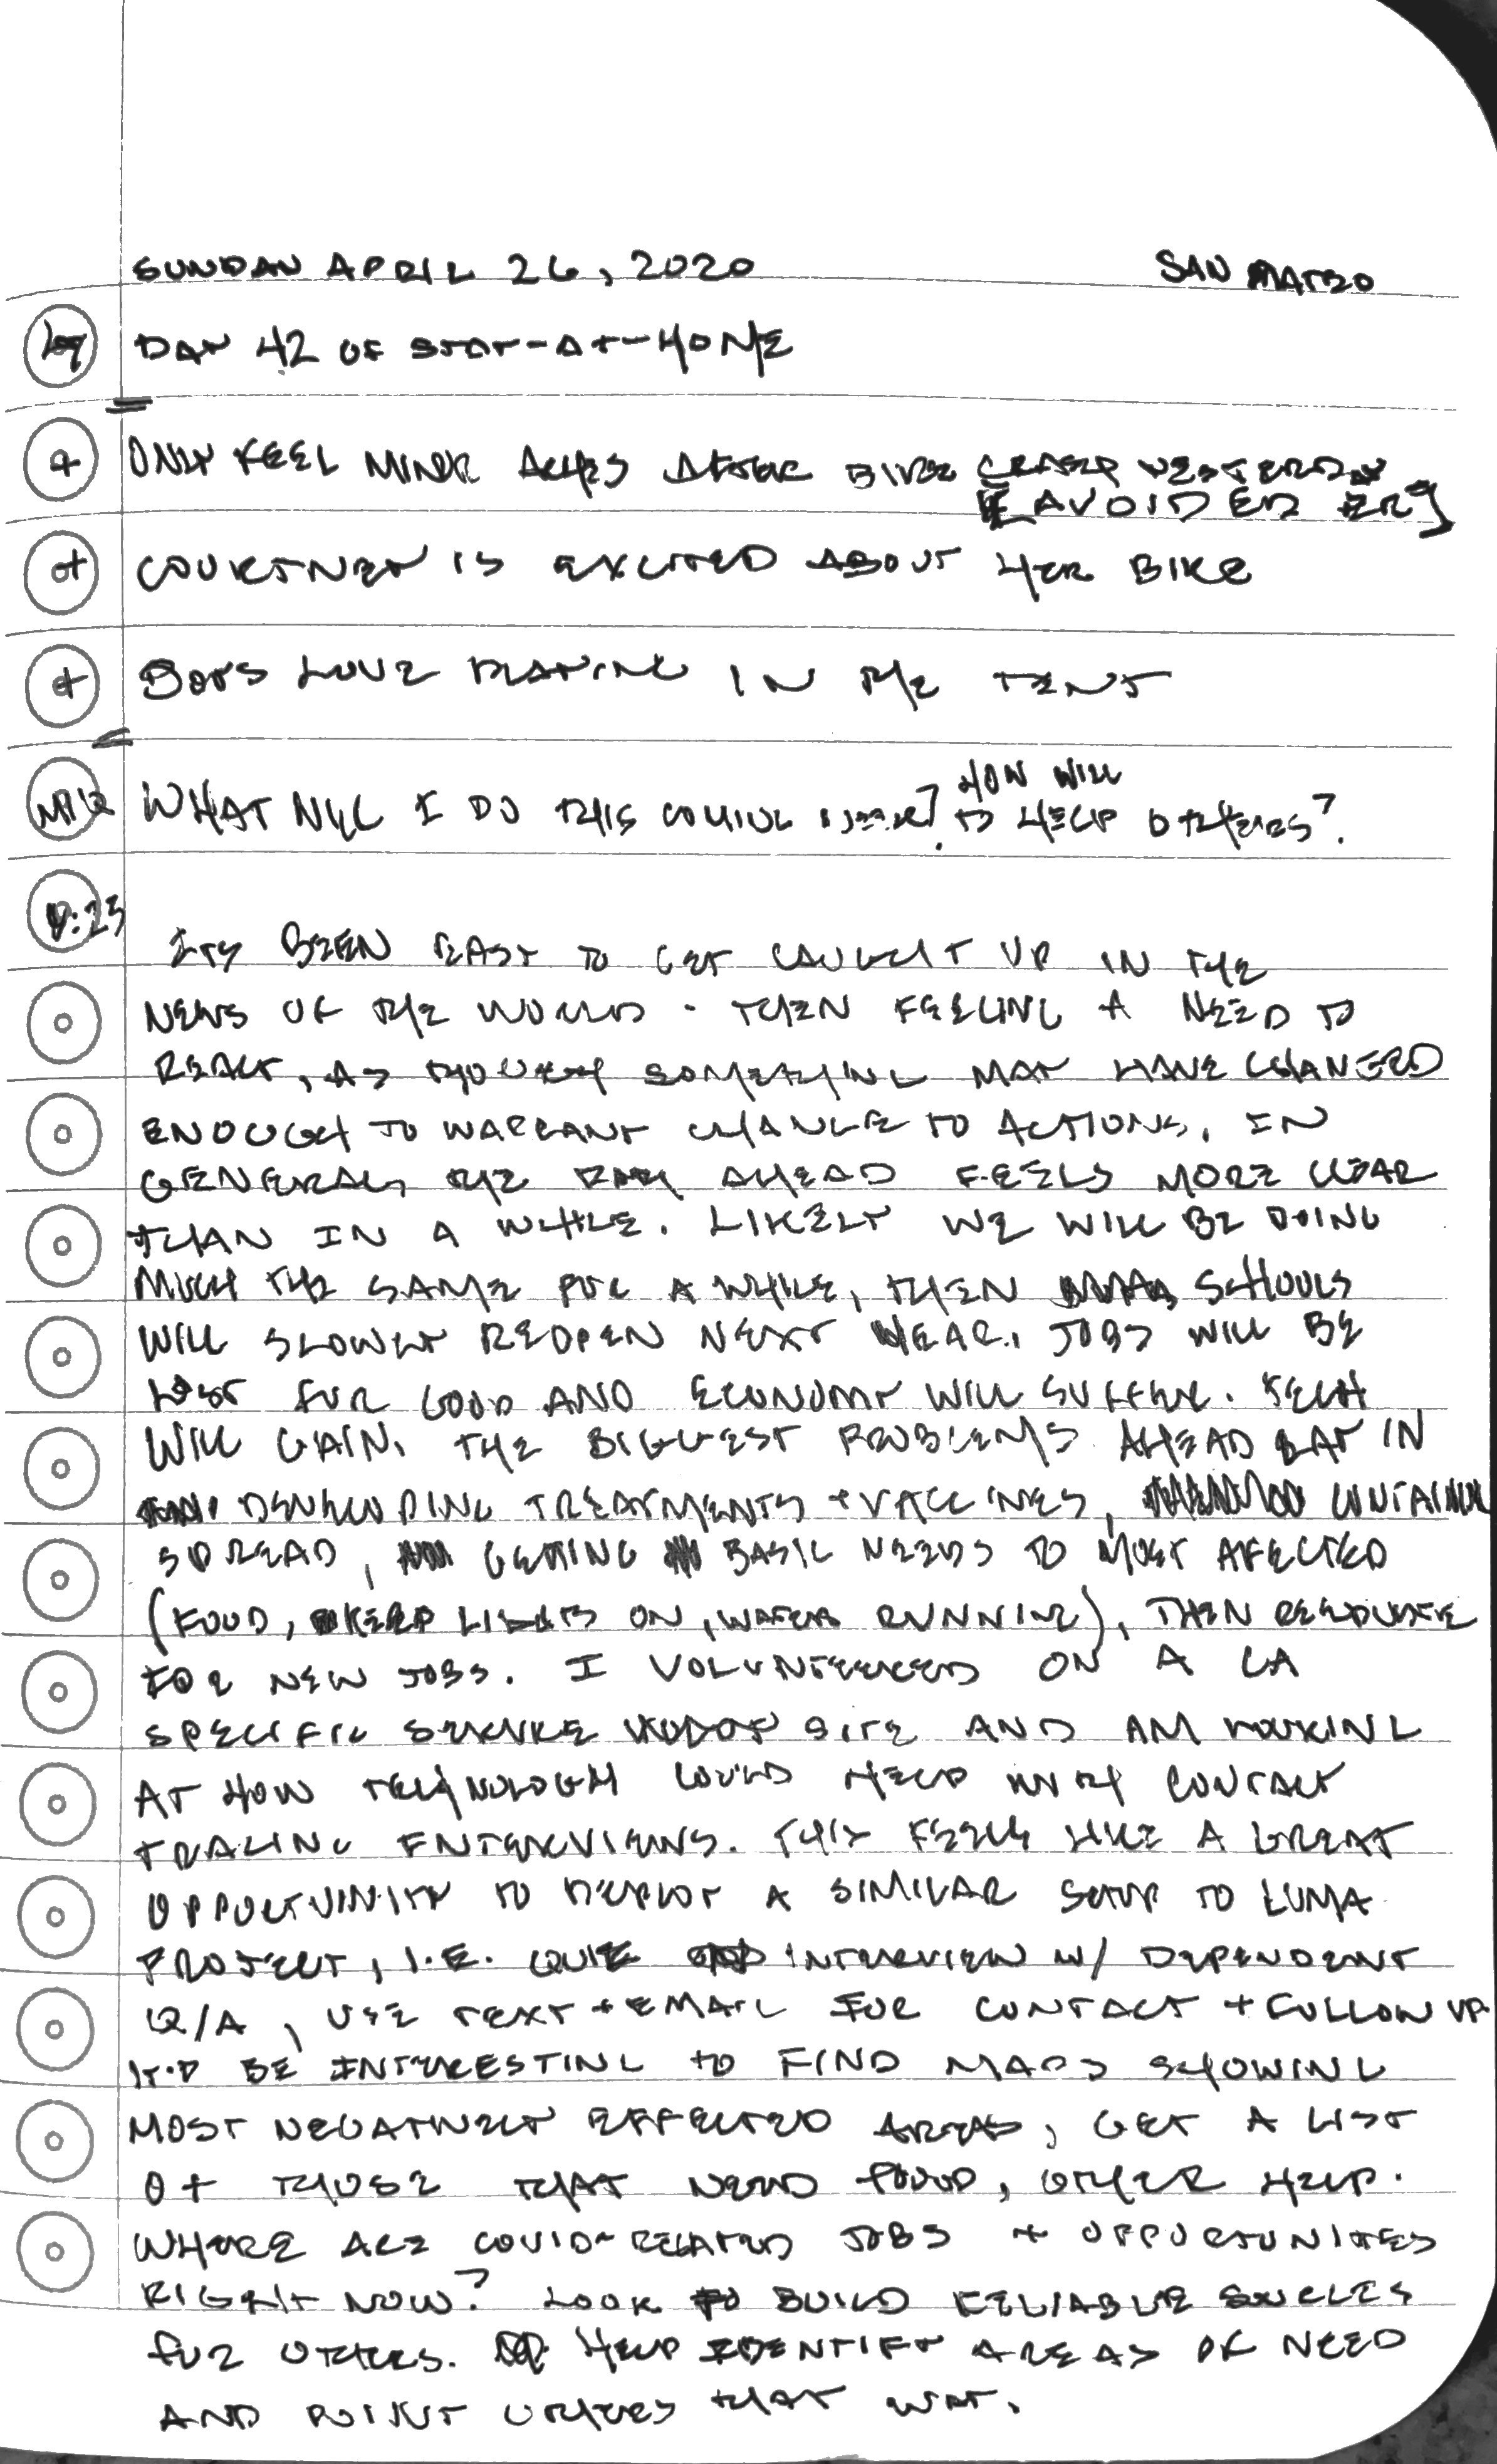 SUNDAY APRIL 26, 2020 SAN MATEO
DAY 42 OF STAY-AT-HOME
+ ONLY FEEL MINOR ACHES AFTER BIKE CRASH YESTERDAY
[AVOIDED ER]
+ COURTNEY IS EXCITED ABOUT HER BIKE
+ BOYS LOVE PLAYING IN THE TENT
HOW WILL
WHAT WILL I DO THIS COMING WEEK? TO HELP OTHERS?
:23
ITS BEEN EASY TO GET CAUGHT UP IN THE
NEWS OF THE WORLD - THEN FEELING A NEED TO
REACT, AS THOUGH SOMETHING MAY HAVE CHANGED
ENOUGH TO WARRANT CHANGE TO ACTIONS. IN
GENERAL, THE AHEAD FEELS MORE CLEAR
THAN IN A WHILE. LIKELY WE WILL BE DOING
MUCH THE SAME FOR A WHILE, THEN SCHOOLS
WILL SLOWLY REOPEN NEXT YEAR. JOBS WILL BE
LOST FOR GOOD AND ECONOMY WILL SUFFER. TECH
WILL GAIN. THE BIGGEST PROBLEMS AHEAD LAY IN
DEVELOPING TREATMENTS + VACCINES, CONTAINING
SPREAD, GETTING BASIC NEEDS TO MOST AFFECTED
(FOOD, KEEP LIGHTS ON, WATER RUNNING), THEN
FOR NEW JOBS. I VOLUNTEERED ON A CA
SPECIFIC SITE AND AM WORKING
AT HOW TECHNOLOGY COULD HELP WITH CONTACT
TRACING INTERVIEWS. THIS FEELS LIKE A GREAT
OPPORTUNITY TO DEPLOY A SIMILAR SETUP TO LUMA
PROJECT, I.E. INTERVIEW W/ DEPENDENT
Q/A, USE TEXT + EMAIL FOR CONTACT + FOLLOW UP
IT'D BE INTERESTING TO FIND MAPS SHOWING
MOST NEGATIVELY EFFECTED AREAS, GET A LIST
OF THOSE THAT NEED FOOD, OTHER HELP.
WHERE ARE COVID-RELATED JOBS + OPPORTUNITIES
RIGHT NOW? LOOK TO BUILD RELIABLE
FOR OTHERS. HELP IDENTIFY AREAS OF NEED
AND POINT OTHERS THAT WAY.